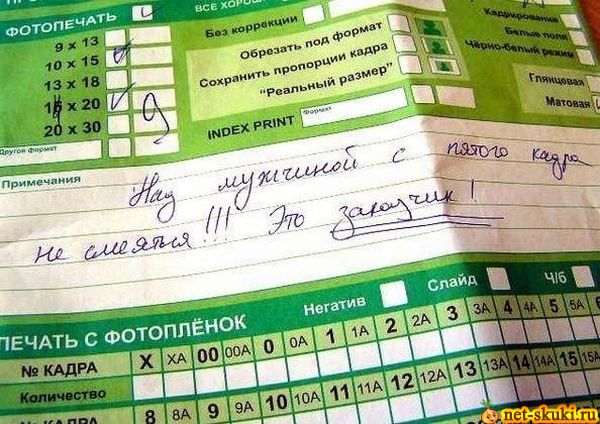 ФОТОПЕЧАТЬ
ВСЕ ХОРОШ
9 x 13
10 x 15
13 x 18
x 20
20 x 30
Другой формат
9
Без коррекции
Обрезать под формат
Сохранить пропорции кадра
"Реальный размер"
INDEX PRINT
Формат
Кадрирование
Белые поля
Чёрно-белый режим
Глянцевая
Матовая
Примечания
Над мужчиной с пятого кадра
не смеяться!!! Это заказчик!
Негатив
Слайд
Ч/б
ПЕЧАТЬ С ФОТОПЛЁНОК
№ КАДРА X XA 00 00A 0 0A 1 1A 2 2A 3 3A 4 4A 5 5A
Количество
№ КАДРА 8 8A 9 9A 10 10A 11 11A 12 12A 13 13A 14 14A 15 15A
net-skuki.ru